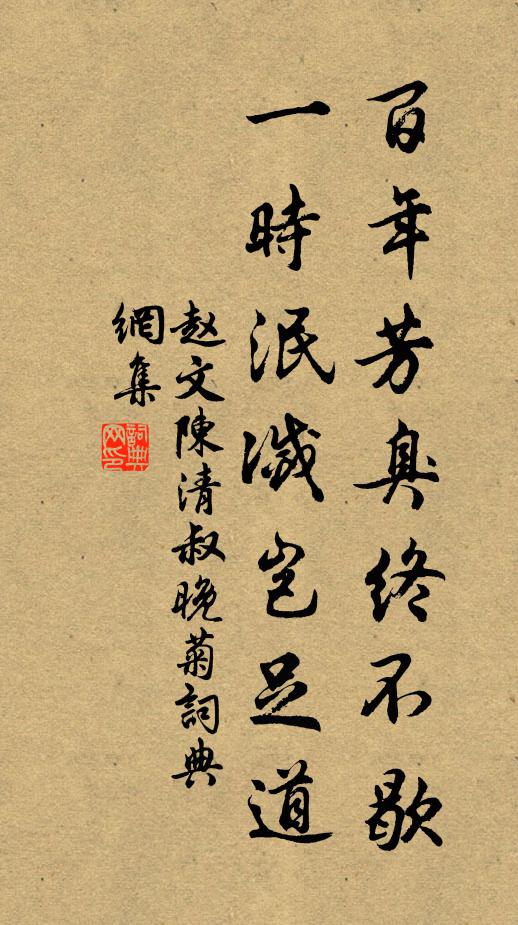 百年芳臭終不歇
一時泯滅豈足道
赵文陳清叔晚菊詞典
網集
詞典網印